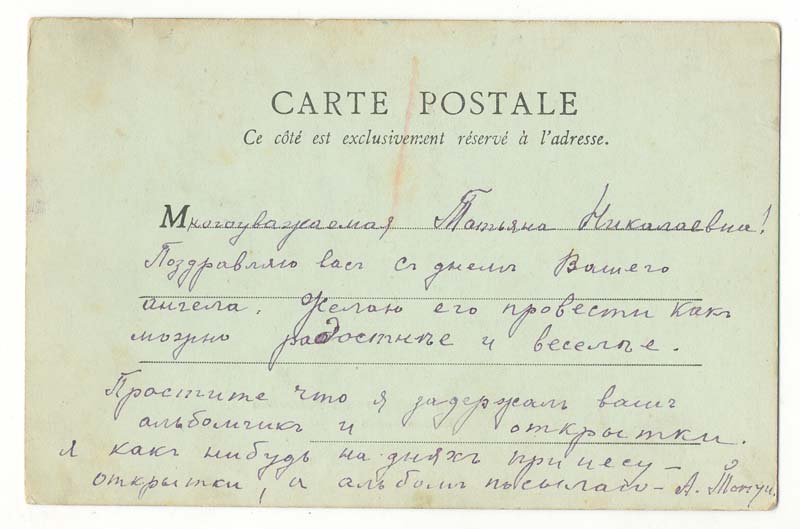 CARTE POSTALE
Ce côté est exclusivement réservé à l'adresse.
Многоуважаемая Татьяна Николаевна!
Поздравляю васъ съ днемъ Вашего
ангела. Желаю его провести какъ
можно радостнѣе и веселѣе.
Простите что я задержалъ вашъ
альбомчикъ и открытки.
Я какъ нибудь на дняхъ принесу
открытки, а альбомъ посылаю – А.